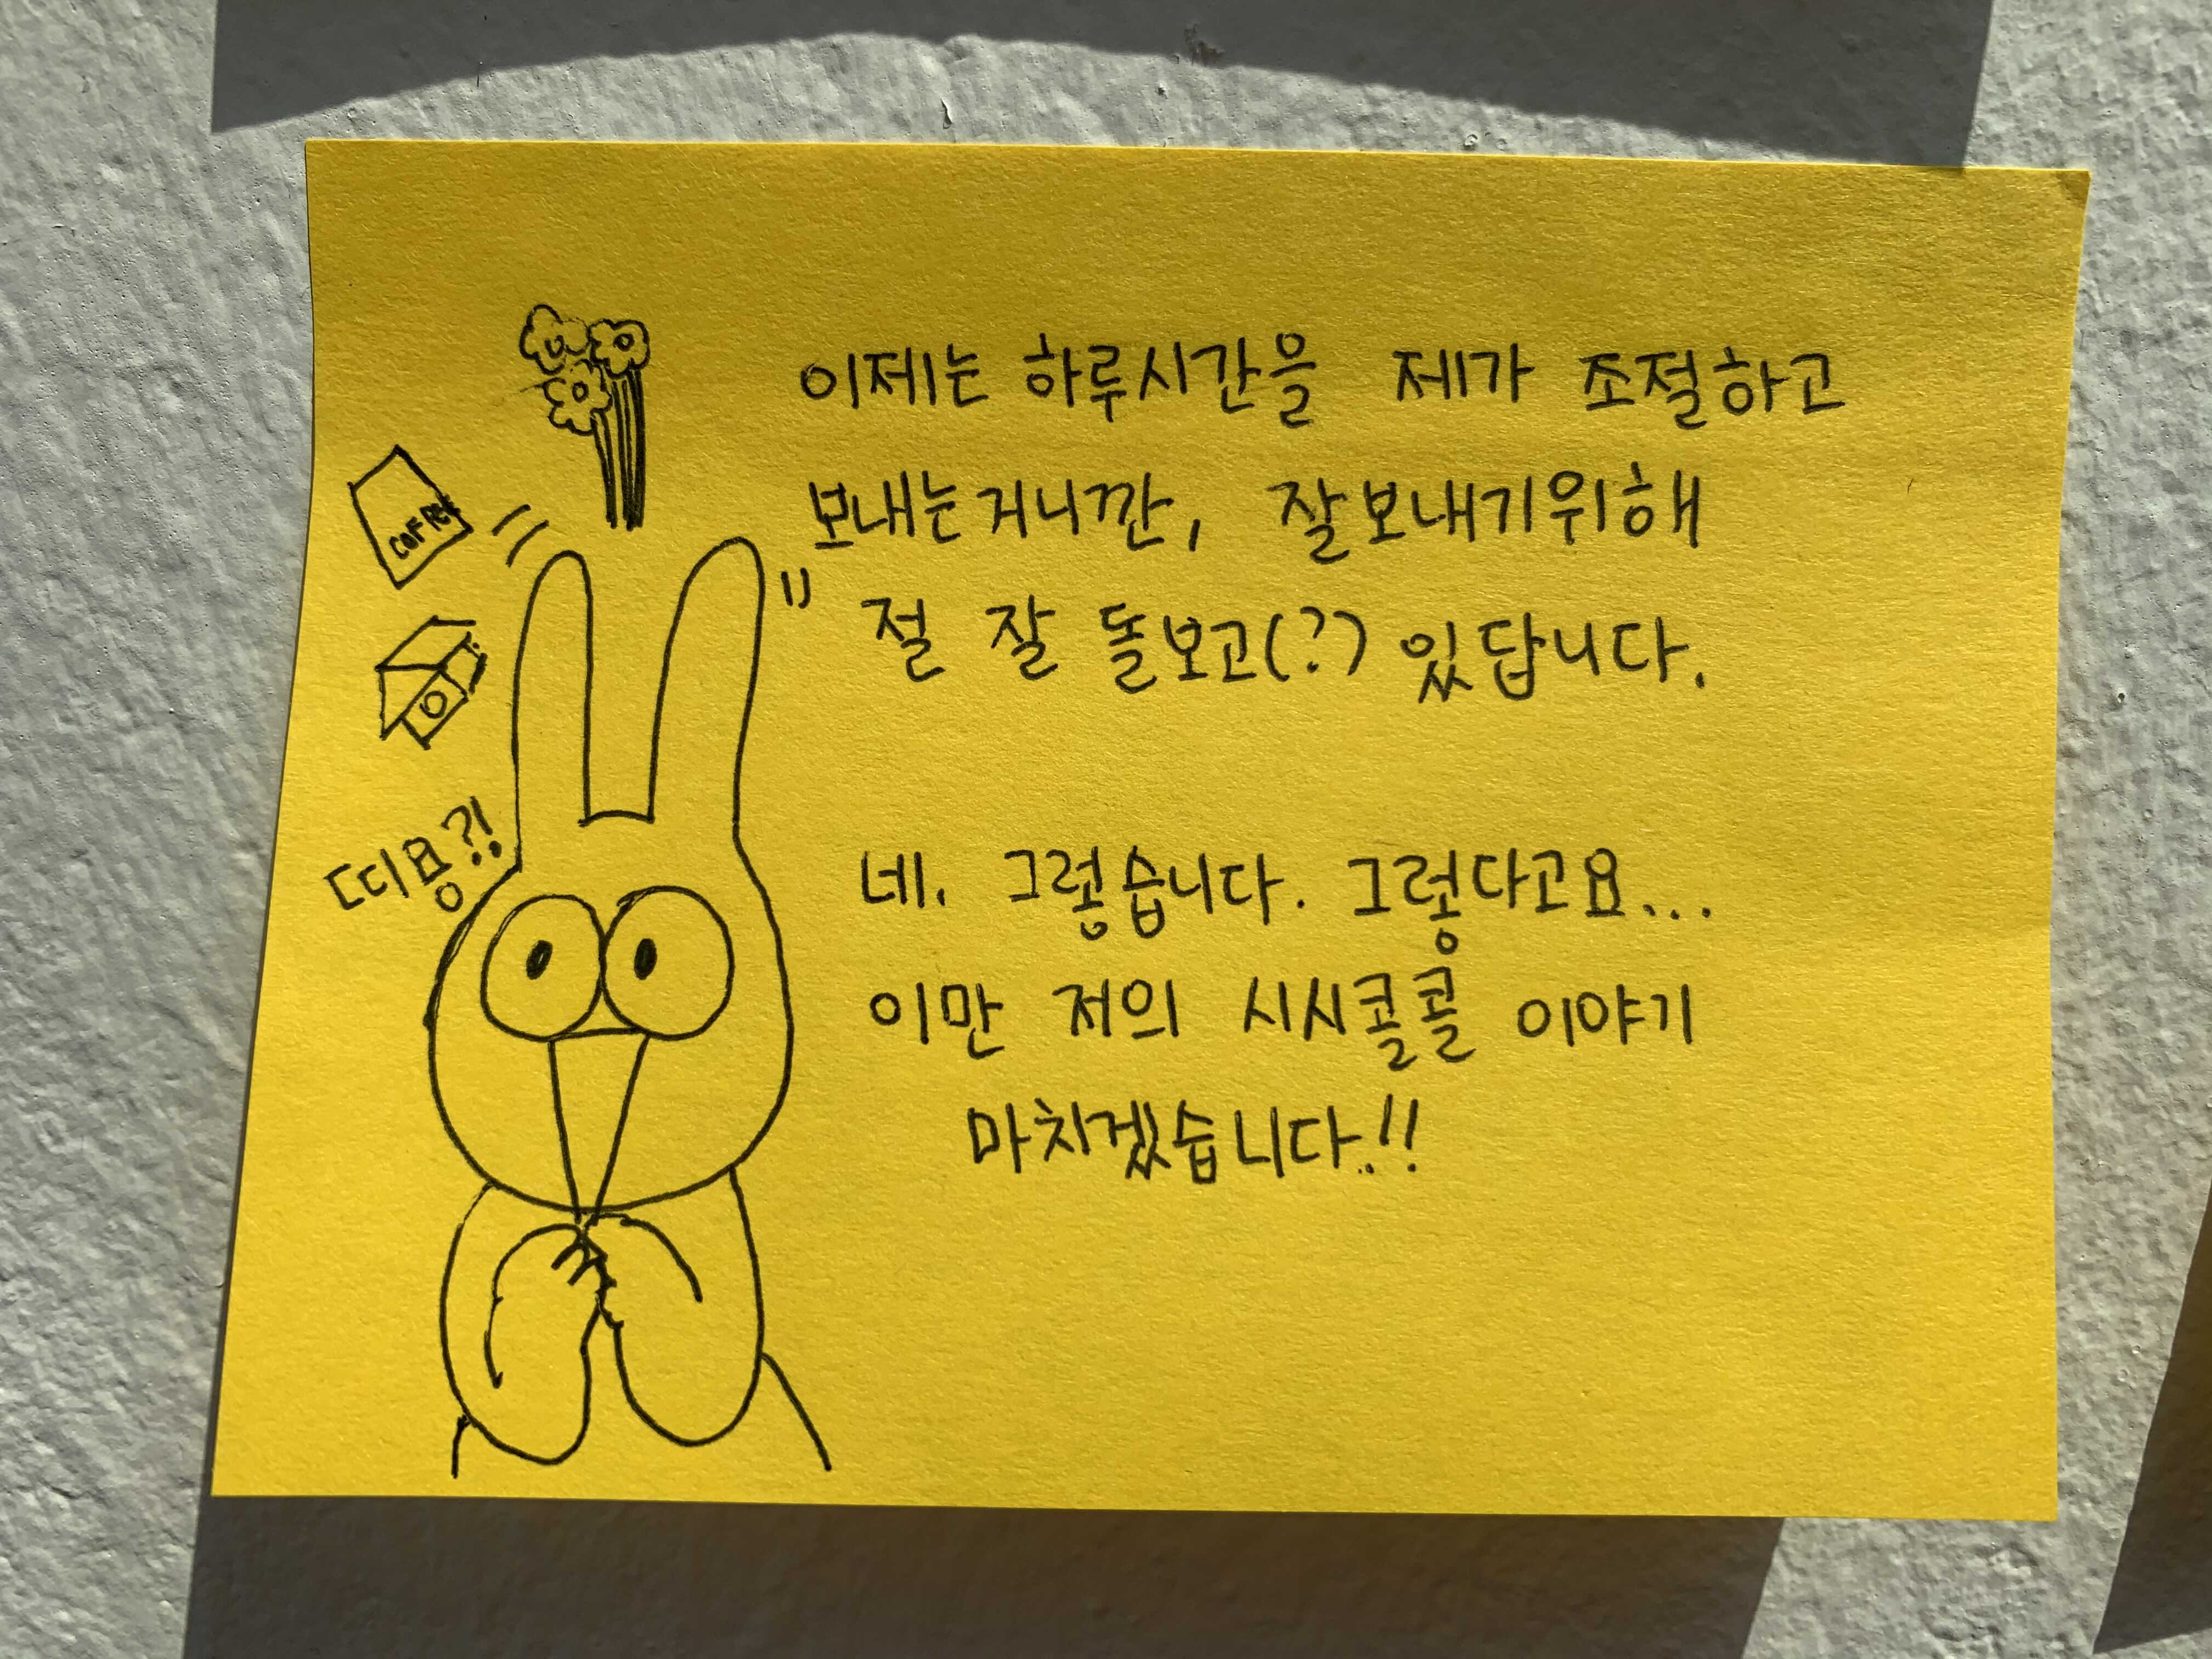 이제는 하루시간을 제가 조절하고
보내는거니깐, 잘보내기위해
절 잘 돌보고(?) 있답니다.
COFFEE
띠용?!
네. 그렇습니다. 그렇다고요...
이만 저의 시시콜콜 이야기
마치겠습니다..!!